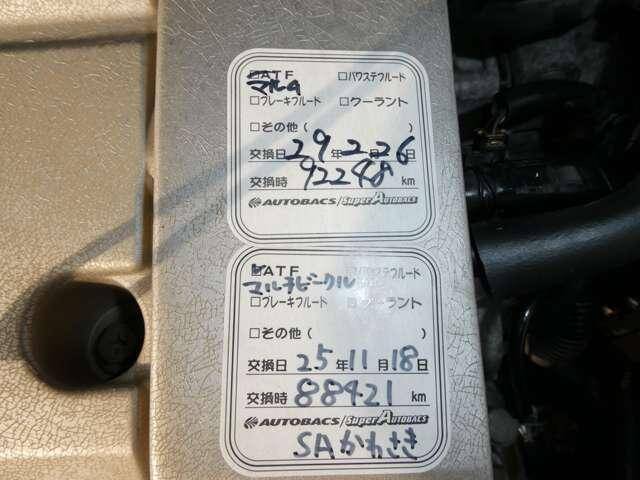 ☑ATF □パワステフルード
マルチ
□ブレーキフルード □クーラント
□その他(
交換日 29年 2月 26日
交換時 92248 km
AUTOBACS/Super AUTOBACS
☑ATF □パワステフルード
マルチビークル
□ブレーキフルード □クーラント
□その他( )
交換日 25年 11月 18日
交換時 88421 km
AUTOBACS/Super AUTOBACS
SAかわさき